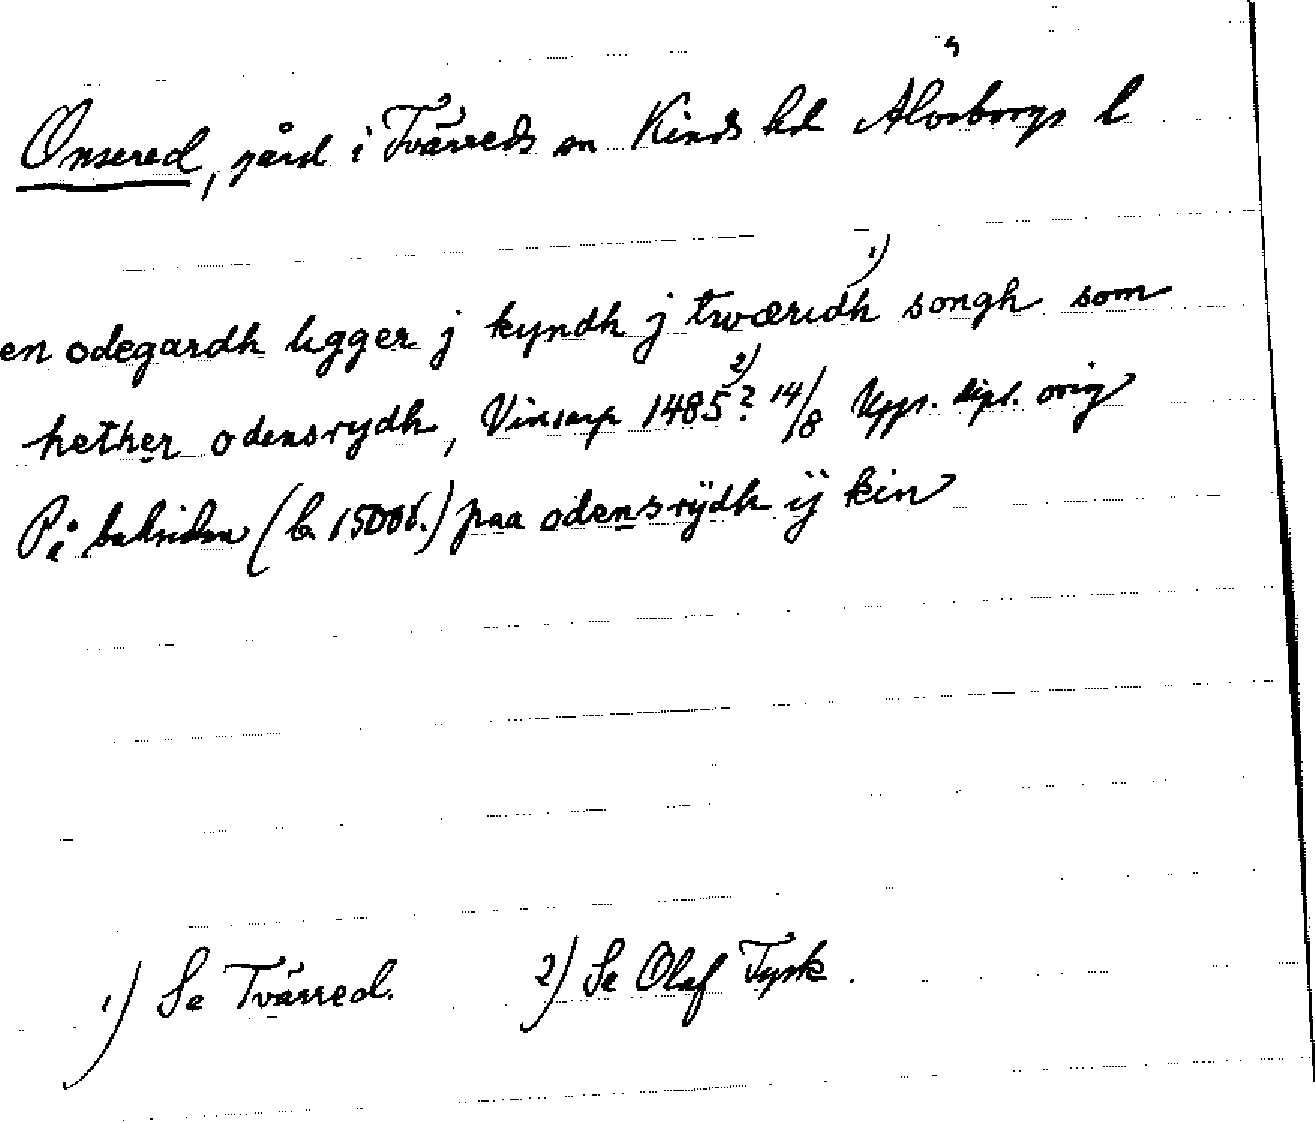 Onsered, gård i Tvärreds sn Kinds hd Älvsborgs l
en odegardh ligger j kyndh j twæridh 1) songh som
hether odensrydh, Vinsarp 1485? 2) 14/8 Upps. dipl. orig
På baksidan (b. 1500t.) paa odensrÿdh ÿ kin
1) Se Tvärred. 2) Se Olaf Tysk.